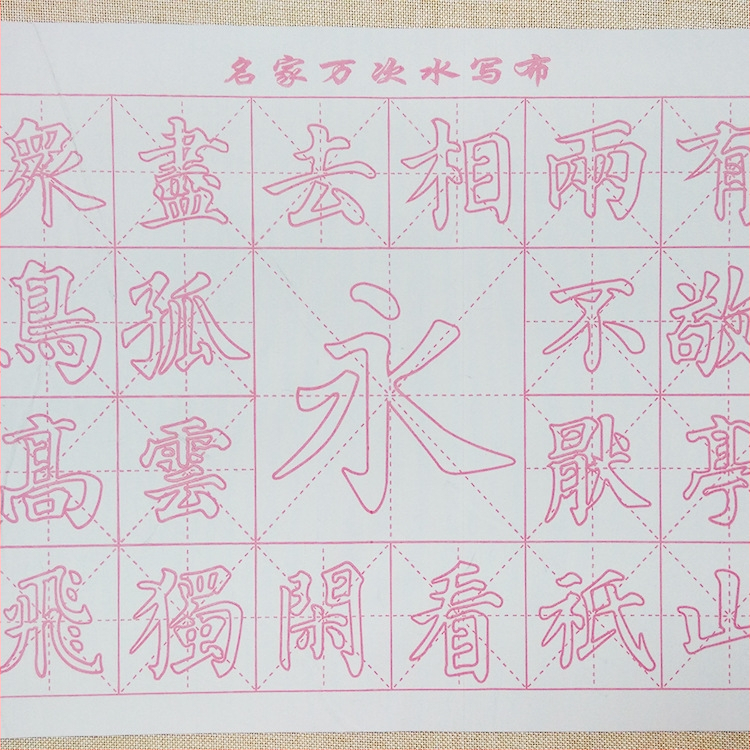 名家万次水写布
衆盡去相兩有
鳥孤永不敬
髙雲猒亭
飛獨閑看祇山